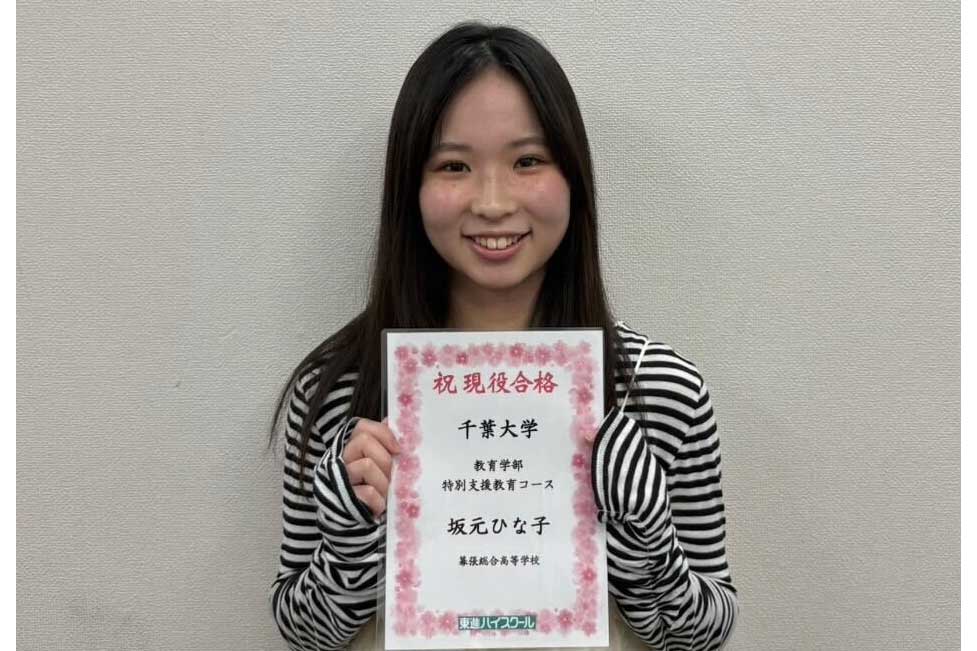 祝 現役合格
千葉大学
教育学部
特別支援教育コース
坂元ひな子
幕張総合高等学校
東進ハイスクール